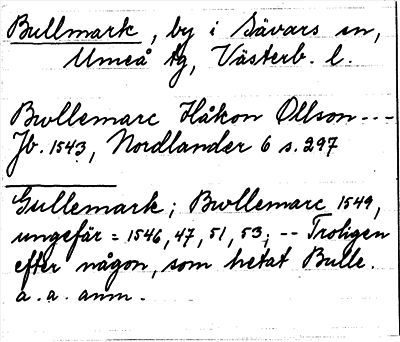 Bullmark, by i Sävars sn,
Umeå tg, Västerb. l.
Bwllemarc Håkon Ollson ---
Jb. 1543, Nordlander 6 s. 297
Gullemark; Bwllemarc 1549,
ungefär = 1546, 47, 51, 53; -- Troligen
efter någon, som hetat Bulle.
a. a. anm.